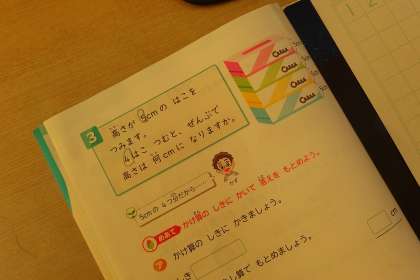 3 高さが 5cmの はこを
つみます。
4はこ つむと、ぜんぶで
高さは 何cmに なりますか。
5cmの 4つ分だから……
かず
めあて かけ算の しきに かいて 答えを もとめよう。
ア かけ算の しきに かきましょう。
しき
し算で もとめましょう。
の
12